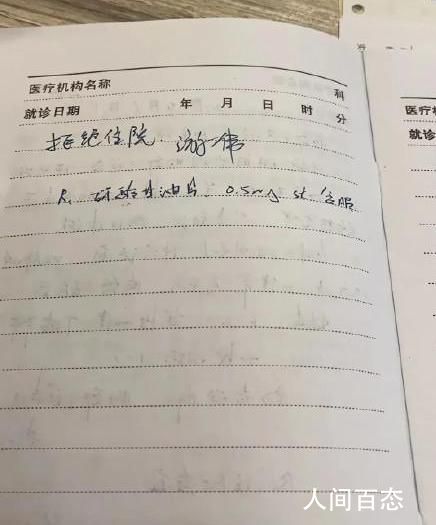 医疗机构名称 科
就诊日期 年 月 日 时 分
拒绝住院 游伟
R. 硝酸甘油片 0.5mg st 含服
医疗
就诊
人间百态